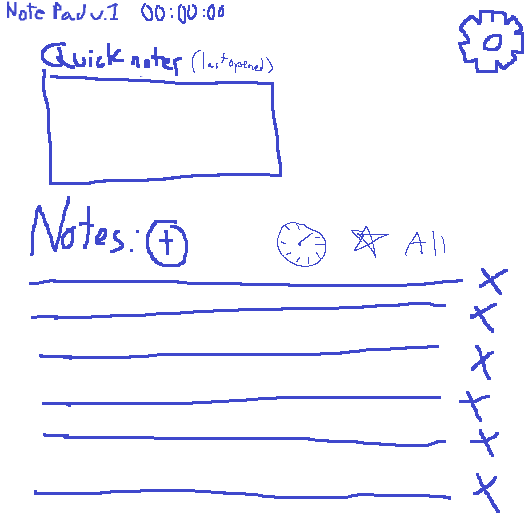 Note Pad v.1 00:00:00
Quick notes (last opened)
Notes: +
All
X
X
X
X
X
X